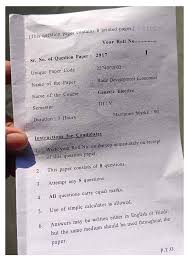 [This question paper contains 8 printed pages]
Your Roll No.
Sr. No. of Question Paper : 2917
Unique Paper Code
Name of the Paper : Basic Development Economics
Name of the Course : Generic Elective
Semester
Duration : 3 Hours Maximum Marks :
Instructions for Candidates
1. Write your Roll No. on the top immediately on receipt
of this question paper.
2. This paper consists of 8 questions.
3. Attempt any questions.
4. All questions carry equal marks.
5. Use of simple calculator is allowed.
6. Answers may be written either in English or Hindi;
but the same medium should be used throughout the
paper.
P.T.O.